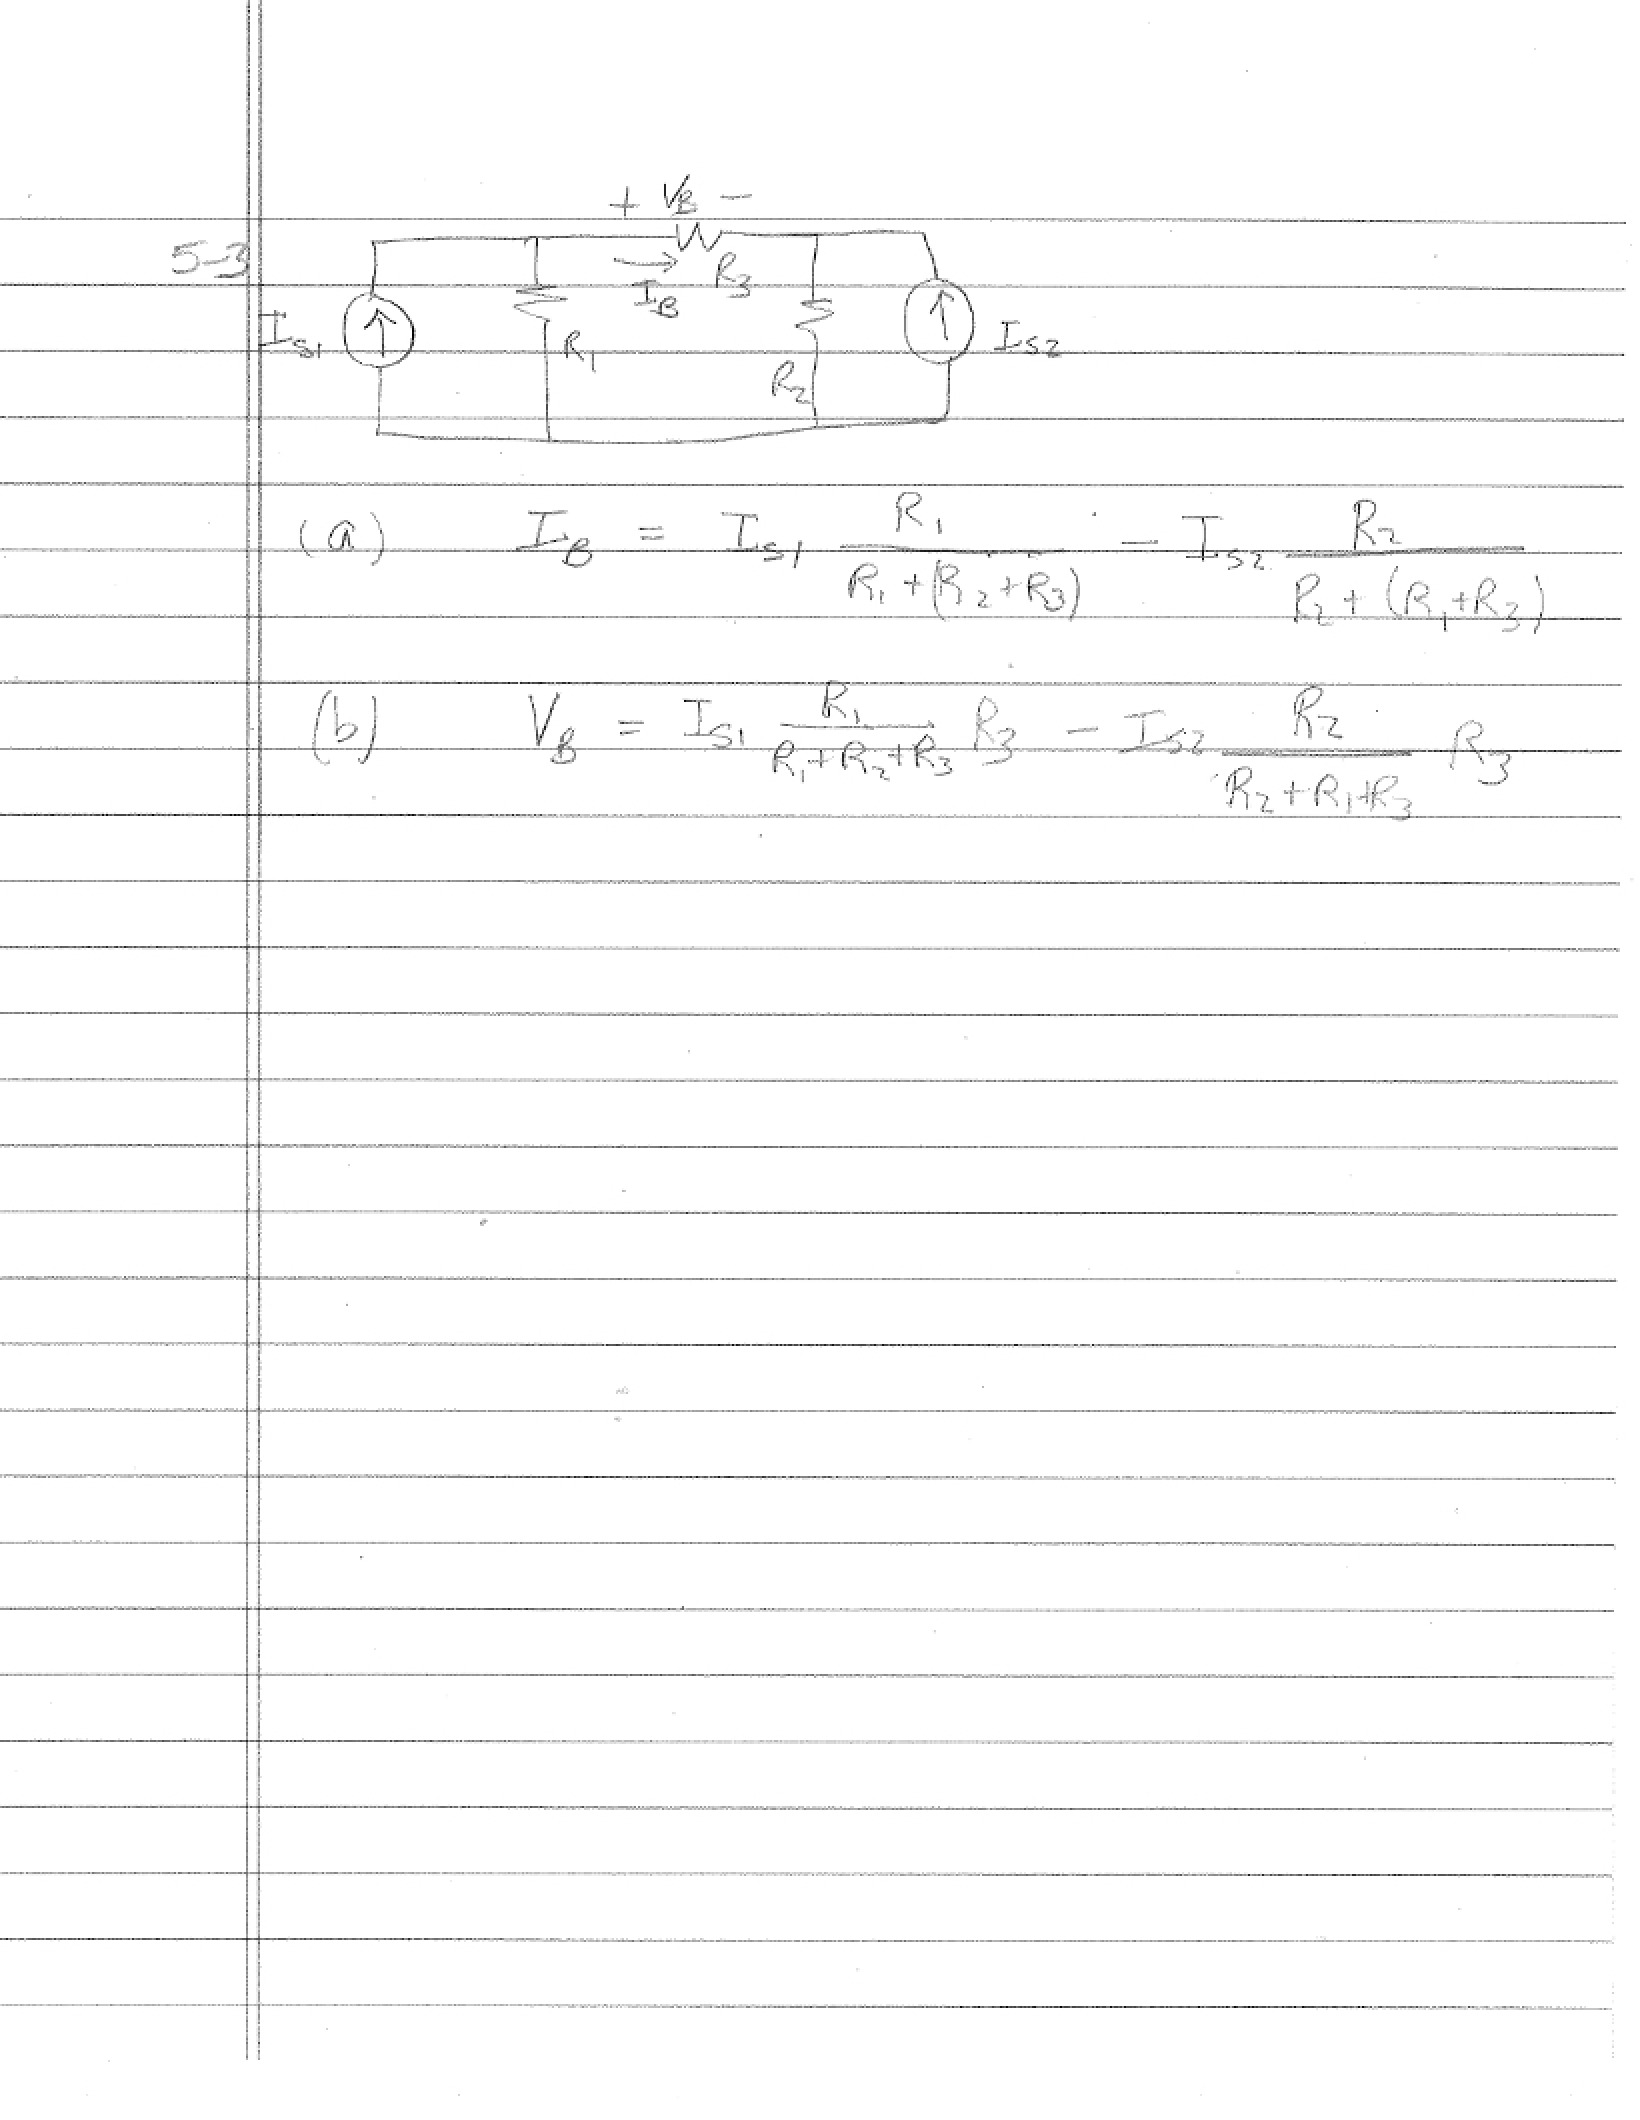 + VB −
5-3
IS1
R1
IB
R3
R2
IS2
(a) IB = IS1 R1 / (R1 + (R2 + R3)) − IS2 R2 / (R2 + (R1 + R3))
(b) VB = IS1 R1 / (R1 + R2 + R3) R3 − IS2 R2 / (R2 + R1 + R3) R3